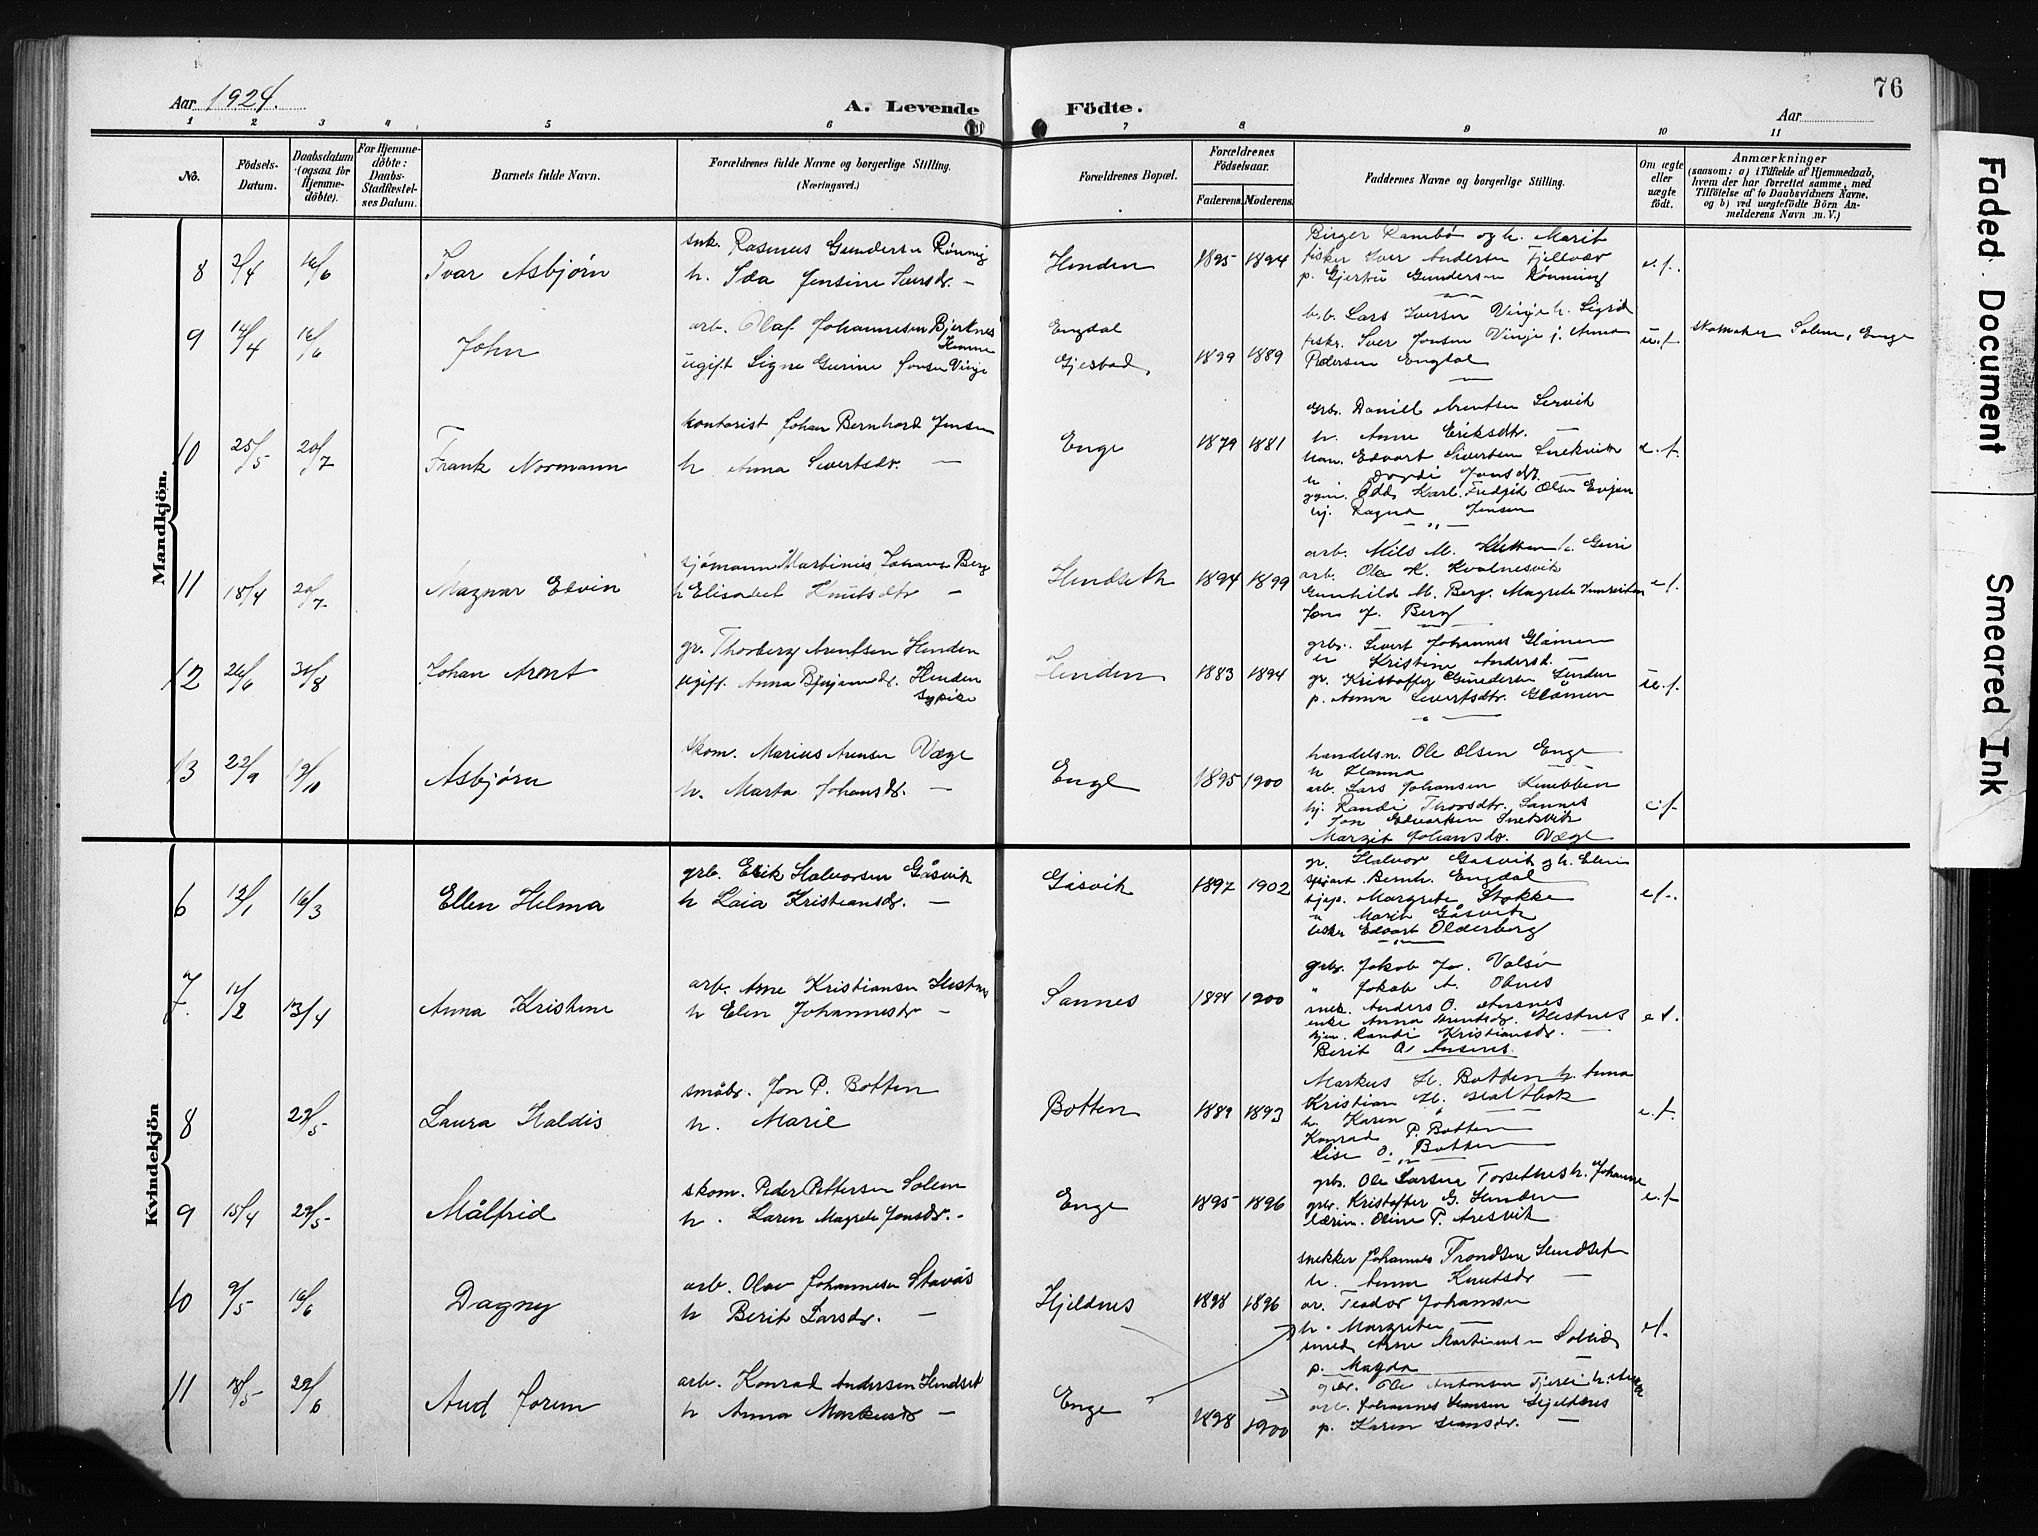 76
Aar 1924.
A. Levende Födte.
Aar
1 2 3 4 5 6 7 8 9 10 11
No.
Födsels-Datum.
Daabsdatum (ogsaa for Hjemme-döbte).
For Hjemme-döbte: Daabs-Stadfæstel-ses Datum.
Barnets fulde Navn.
Forældrenes fulde Navne og borgerlige Stilling. (Næringsvei.)
Forældrenes Bopæl.
Forældrenes Födselsaar.
Faderens. Moderens.
Faddernes Navne og borgerlige Stilling.
Om ægte eller uægte födt.
Anmærkninger
(saasom: a) i Tilfælde af Hjemmedaab, hvem der har forrettet samme, med Tilföielse af to Daabsvidners Navne, og b) ved uægtefödte Börn An-melderens Navn m. V.)
Mandkjön.
8 2/4 16/6 Ivar Asbjørn
snk. Rasmus Gundersen Rönnig
h. Ida Jensine Iversdr. —
Henden 1895 1894
Birger Rambø og h. Marit
fisker Iver Andersen Fjellvær
p. Gjertru Gundersen Rönning
e.f.
9 14/4 16/6 John
arb. Olaf Johannesen Bjertnes
Hemne
ugift Signe Gurine Jonsen Vinje
Engdal
Gjesbad, 1899 1889
b.b. Lars Iversen Vinje h. Sigrid
fiskr. Iver Jonsen Vinje j. Anna
Pedersen Engdal
u.f.
skomaker Solem, Enge
10 25/5 20/7 Frank Normann
kontorist Johan Bernhard Jensen
h. Anna Sivertsdr. —
Enge 1879 1881
Grb. Daniel Arentsen Servik
h. Anne Eriksdtr. —
han. Edvart Sivertsen Snekvik
h. Jordi Jonsdtr. —
gym. Odd Karl Fredrik Olsen Evjen
hj. Ragna Jensen
e.f.
11 18/4 20/7 Magnar Edvin
sjömann Martinus Johansen Berg
h Elisabet Knutsdtr —
Hendseth 1894 1899
arb. Nils M. Hetten h. Guri
arb. Ole K. Kvalnesvik
Gunhilde M. Berg. Magrete
Jons J. Berg
e.f.
12 26/6 31/8 Johan Arent
gr. Thorberg Arentsen Henden
ugift. Anna Benjaminsdr. Henden
sypike
Henden 1883 1894
grbr. Sivert Johannes Glåmen
h Kristine Andersd. —
gr. Kristoffer Gundersen Henden
p. Anna Sivertsdtr. Glåmen
u.f.
13 22/9 19/10 Asbjørn
skom. Marius Arensen Væge
h. Marta Johansdr. —
Enge 1895 1900
handelsm. Ole Olsen Enge
h Hanna —
arb. Lars Johansen Knubben
hj. Randi Thorsdtr. Sannes
Jon Edvartsen Snekvik
Margit Johansdr. Væge
e.f.
Kvindekjön
6 12/1 16/3 Ellen Helma
grb. Erik Halvorsen Gåsvik
h Laia Kristiansdr. —
Gåsvik 1897 1902
gr. Halvor Gåsvik og h. Elen
Bernh. Engdal
Margrete Stokke
" Marit Gåsvik
fisker Edvart Olderberg
e.f.
7. 11/2 13/4 Anna Kristine
arb. Arne Kristiansen Hestnes
h Elen Johannesdr —
Sannes 1894 1900
grbr. Jakob Jo. Valsö
" Jakob A. Odnes
snek. Anders O. Aasnes
enke Anna Arentsdr. Hestnes
hjem. Randi Kristiansdr. —
Berit O Aasnes
e.f.
8 22/5 Laura Haldis
småbr. Jon P. Botten
h. Marie
Botten 1889 1893
Markus H. Botten h. Anna
Kristian H.
h. Karen
Konrad P. Botten
Lise O. Botten
e.f.
9 15/4 22/5 Målfrid
skom. Peder Pettersen Solem
h. Karen Magrete Jonsdr. —
Enge 1895 1896
grb. Ole Larsen Torsetnes h. Johanne
grbr. Kristoffer G. Henden
lærin. Oline P. Aresvik
e.f.
10 9/5 16/6 Dagny
arb. Olav Johannesen Stavås
h Berit Larsdr. —
Hjeldnes 1898 1896
snekker Johannes Trondsen Hendset
h. Anna Knutsdr —
ar. Teodor Johansen
h. Margrete —
smed. Arne Martinsen Solli
p. Magda
e.f.
11 18/5 22/6 Aud Jorun
arb. Konrad Andersen Hendset
h Anna Markusdr —
Enge 1898 1900
gbr. Ole Antonsen Fjerli h. Anna
arb. Johannes Hansen Hjeldnes
p. Karen Hansdr. —
Faded Document
Smeared Ink